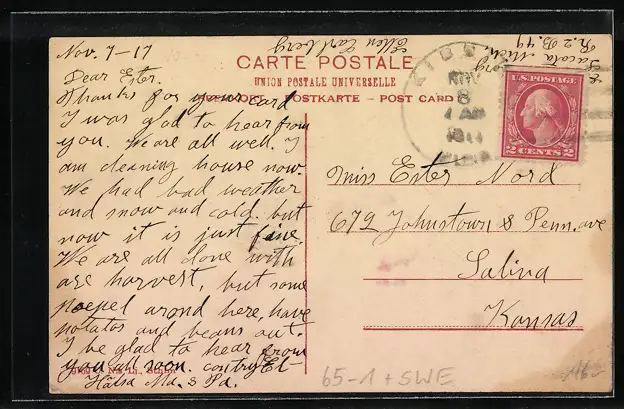 Nov. 7-17
Dear Ester.
Thanks for your card
I was glad to hear from
you. We are all well. I
am cleaning house now.
We had bad weather
and snow and cold. but
now it is just fine.
We are all done with
are harvest, but some
poepel arond here, have
potatos and beans out.
I be glad to hear from
you all soon.
Hälsa Ma. & Pa.
Ellen Carlberg
Lacota Mich.
R. 2 B. 49
CARTE POSTALE
UNION POSTALE UNIVERSELLE
POSTKARTE – POST CARD
NOV
8
1 AM
U.S. POSTAGE
2 CENTS 2
Miss Ester Nord
679 Johnstown & Penn. ave
Salina
Kansas
65-1 + SWE